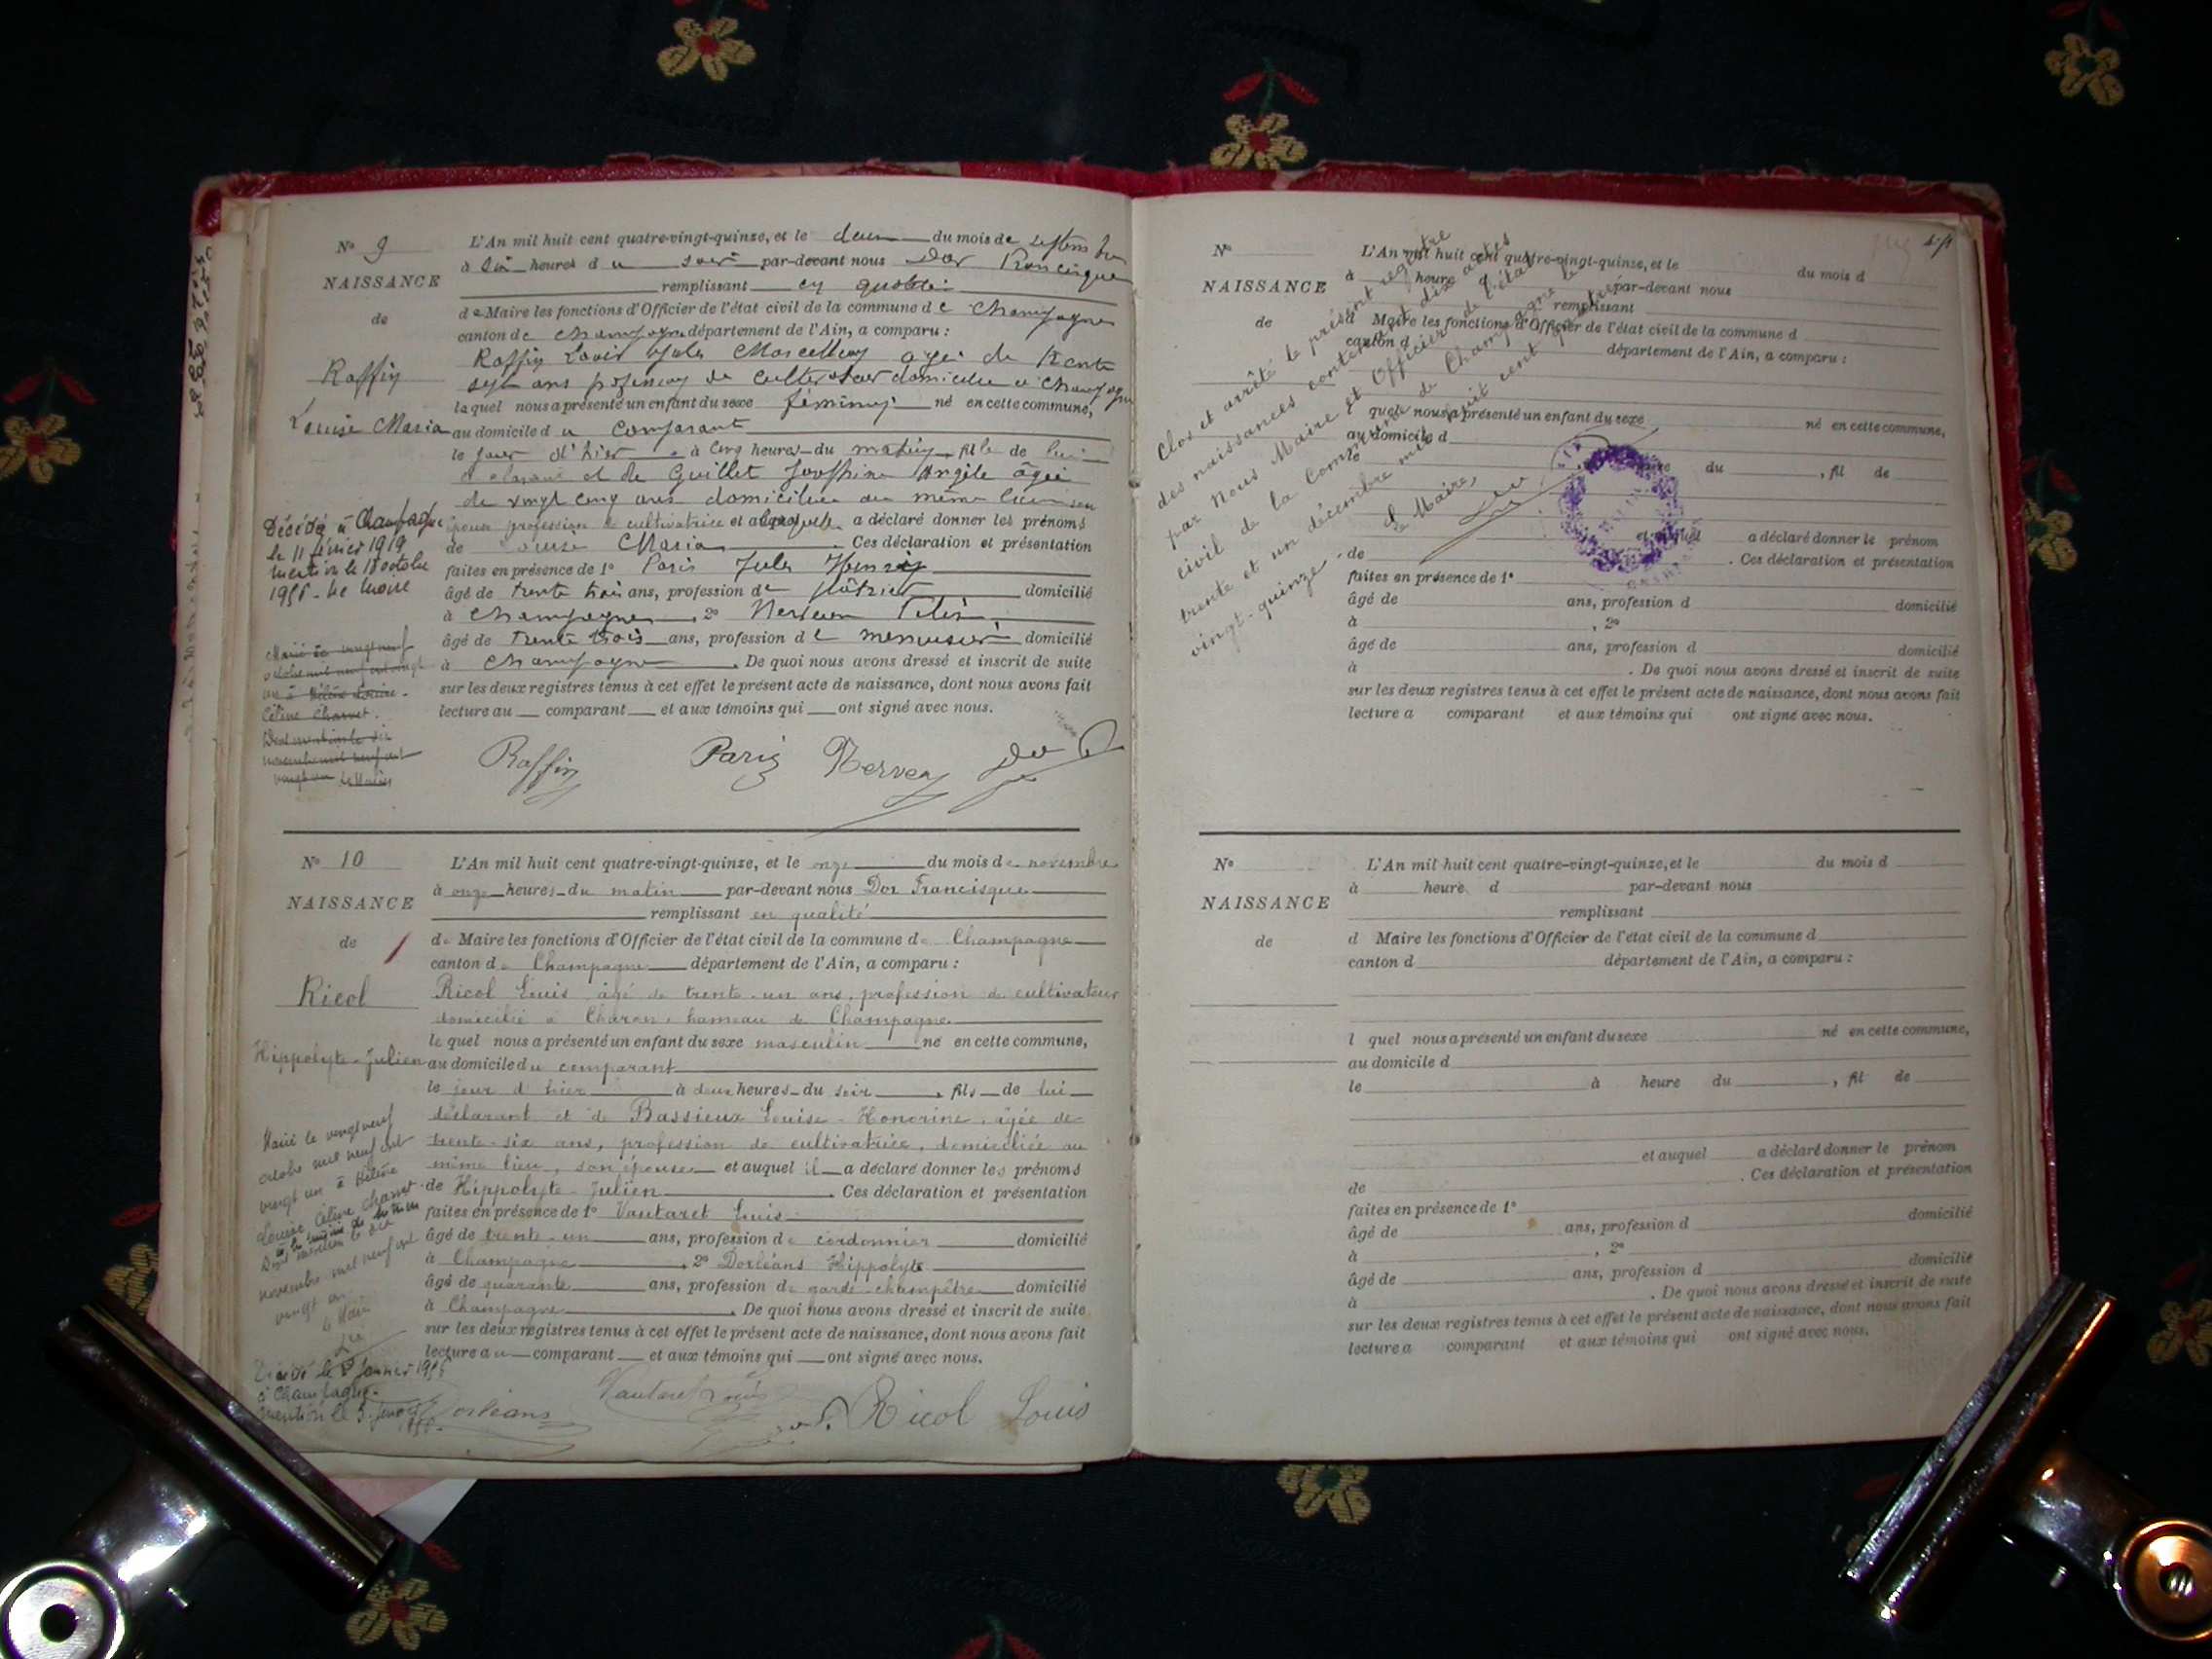 N° 9
NAISSANCE
de
Raffin
Louise Maria
L'An mil huit cent quatre-vingt-quinze, et le deux du mois de septembre
à six heures du soir par-devant nous Dor Francisque
remplissant en qualité
de Maire les fonctions d'Officier de l'état civil de la commune de Champagne
canton de Champagne département de l'Ain, a comparu :
Raffin Louis Jules Marcellin âgé de trente
sept ans profession de cultivateur domicilié à Champagne
lequel nous a présenté un enfant du sexe féminin né en cette commune,
au domicile du comparant
le jour d'hier à cinq heures du matin fille de lui
déclarant et de Guillet Joséphine Angèle âgée
de vingt cinq ans domiciliée au même lieu son
épouse profession de cultivatrice et a déclaré donner les prénoms
de Louise Maria. Ces déclaration et présentation
faites en présence de 1° Paris Jules Henri
âgé de trente trois ans, profession de plâtrier domicilié
à Champagne, 2°
âgé de trente trois ans, profession de menuisier domicilié
à Champagne. De quoi nous avons dressé et inscrit de suite
sur les deux registres tenus à cet effet le présent acte de naissance, dont nous avons fait
lecture au comparant et aux témoins qui ont signé avec nous.
Décédée à Champagne
le 11 février 1919
mention le 18 octobre
1956 - Le Maire
Marié le vingt neuf
octobre mil neuf cent vingt
un à Hélène Louise
Céline Charvet.
Dont mention le six
novembre mil neuf cent
vingt un Le Maire
Raffin Paris Nerven Dor
N° 10
NAISSANCE
de
Ricol
Hippolyte-Julien
L'An mil huit cent quatre-vingt-quinze, et le onze du mois de novembre
à onze heures du matin par-devant nous Dor Francisque
remplissant en qualité
de Maire les fonctions d'Officier de l'état civil de la commune de Champagne
canton de Champagne département de l'Ain, a comparu :
Ricol Louis, âgé de trente-un ans, profession de cultivateur
domicilié à Charon, hameau de Champagne
lequel nous a présenté un enfant du sexe masculin né en cette commune,
au domicile du comparant
le jour d'hier à deux heures du soir, fils de lui
déclarant et de Bassieux Louise-Honorine, âgée de
trente-six ans, profession de cultivatrice, domiciliée au
même lieu, son épouse et auquel il a déclaré donner les prénoms
de Hippolyte-Julien. Ces déclaration et présentation
faites en présence de 1° Vautaret Louis
âgé de trente-un ans, profession de cordonnier domicilié
à Champagne, 2° Dorléans Hippolyte
âgé de quarante ans, profession de garde-champêtre domicilié
à Champagne. De quoi nous avons dressé et inscrit de suite
sur les deux registres tenus à cet effet le présent acte de naissance, dont nous avons fait
lecture au comparant et aux témoins qui ont signé avec nous.
Marié le vingt neuf
octobre mil neuf cent
vingt un à Hélène
Louise Céline Charvet
Dont mention le six
novembre mil neuf cent
vingt un
Le Maire
Dor
Décédé le 2 Janvier 1956
à Champagne.
mention le 3 Janvier
1956.
Dorléans Vautaret Louis Ricol Louis
N°
NAISSANCE
de
L'An mil huit cent quatre-vingt-quinze, et le du mois d
à heure d par-devant nous
remplissant
d Maire les fonctions d'Officier de l'état civil de la commune d
canton d département de l'Ain, a comparu :
quel nous a présenté un enfant du sexe né en cette commune,
au domicile d
le heure du , fil de
et auquel a déclaré donner le prénom
de . Ces déclaration et présentation
faites en présence de 1°
âgé de ans, profession d domicilié
à , 2°
âgé de ans, profession d domicilié
à . De quoi nous avons dressé et inscrit de suite
sur les deux registres tenus à cet effet le présent acte de naissance, dont nous avons fait
lecture a comparant et aux témoins qui ont signé avec nous.
Clos et arrêté le présent registre
des naissances contenant dix actes
par Nous Maire et Officier de l'état
civil de la Commune de Champagne le
trente et un décembre mil huit cent quatre
vingt-quinze.
Le Maire,
Dor
N°
NAISSANCE
de
L'An mil huit cent quatre-vingt-quinze, et le du mois d
à heure d par-devant nous
remplissant
d Maire les fonctions d'Officier de l'état civil de la commune d
canton d département de l'Ain, a comparu :
l quel nous a présenté un enfant du sexe né en cette commune,
au domicile d
le à heure du , fil de
et auquel a déclaré donner le prénom
de . Ces déclaration et présentation
faites en présence de 1°
âgé de ans, profession d domicilié
à , 2°
âgé de ans, profession d domicilié
à . De quoi nous avons dressé et inscrit de suite
sur les deux registres tenus à cet effet le présent acte de naissance, dont nous avons fait
lecture a comparant et aux témoins qui ont signé avec nous.